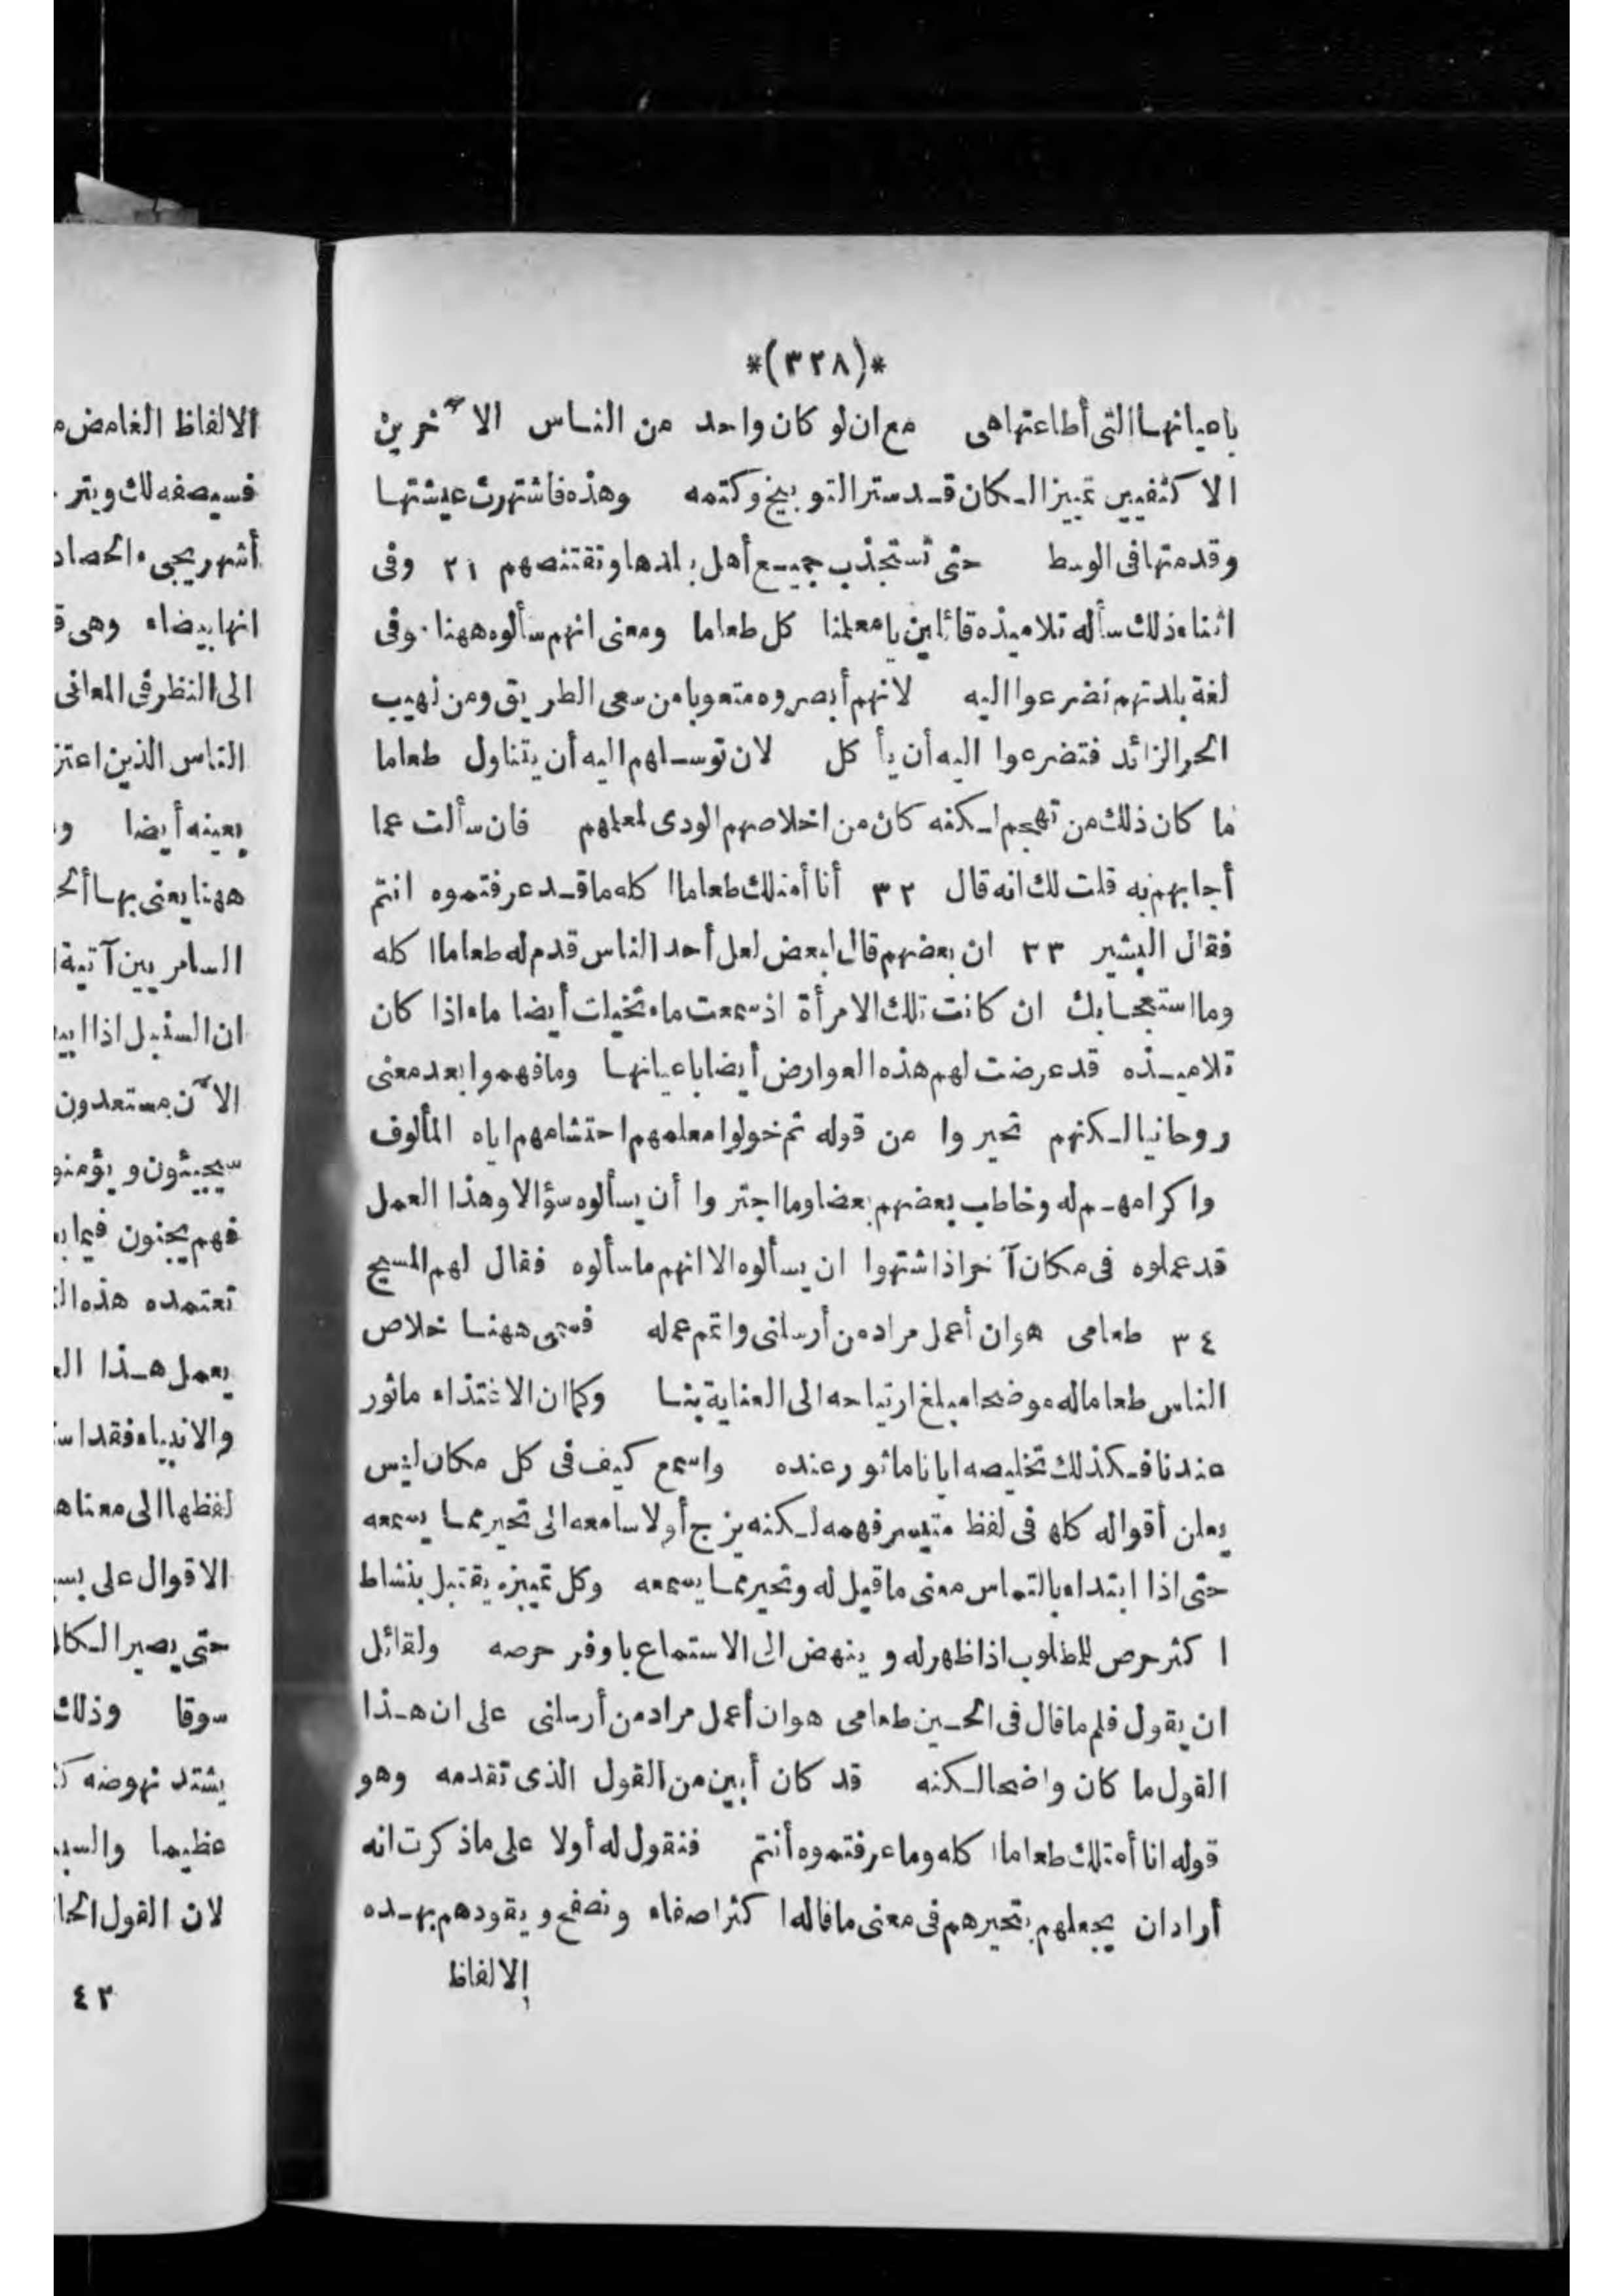 *(٣٢٨)*
باعيانها التى أطاعتها هى مع ان لو كان واحد من الناس الآخرين
الاكثفيين تمييزا لكان قد ستر التوبيخ وكتمه وهذه فاشتهرت عيشتها
وقدمتها فى الوسط حتى تستجذب جميع أهل بلدها وتقتنصهم ٣١ وفى
اثناء ذلك سأله تلاميذه قائلين يا معلمنا كل طعاما ومعنى انهم سألوه ههنا وفى
لغة بلدتهم تضرعوا اليه لانهم أبصروه متعوبا من سعى الطريق ومن لهيب
الحر الزائد فتضرعوا اليه أن يأكل لان توسلهم اليه أن يتناول طعاما
ما كان ذلك من تهجم لكنه كان من اخلاصهم الودى لمعلمهم فان سألت عما
أجابهم به قلت لك انه قال ٣٢ أنا أمتلك طعاما اكله ما قد عرفتموه انتم
فقال البشير ٣٣ ان بعضهم قال لبعض لعل أحد الناس قدم له طعاما اكله
وما استعجابك ان كانت تلك الامرأة اذ سمعت ماء تخيلت أيضا ماء اذا كان
تلاميذه قد عرضت لهم هذه العوارض أيضا باعيانها وما فهموا بعد معنى
روحانيا لكنهم تحيروا من قوله ثم خولوا معلمهم احتشامهم اياه المألوف
واكرامهم له وخاطب بعضهم بعضا وما اجتروا أن يسألوه سؤالا وهذا العمل
قد عملوه فى مكان آخر اذ اشتهوا ان يسألوه الا انهم ما سألوه فقال لهم المسيح
٣٤ طعامى هو ان أعمل مراد من أرسلنى واتمم عمله فسمى ههنا خلاص
الناس طعاما له موضحا مبلغ ارتياحه الى العناية بنا وكما ان الاغتذاء ماثور
عندنا فكذلك تخليصه ايانا ماثور عنده واسمع كيف فى كل مكان ليس
يعلن أقواله كلها فى لفظ متيسر فهمه لكنه يزج أولا سامعه الى تحير مما يسمعه
حتى اذا ابتداء بالتماس معنى ما قيل له وتحير مما يسمعه وكل تمييزه يقتبل بنشاط
اكثر حرص للمطلوب اذا ظهر له وينهض الى الاستماع باوفر حرصه ولقائل
ان يقول فلم ما قال فى الحين طعامى هو ان أعمل مراد من أرسلنى على ان هذا
القول ما كان واضحا لكنه قد كان أبين من القول الذى تقدمه وهو
قوله انا أمتلك طعاما اكله وما عرفتموه أنتم فنقول له أولا على ما ذكرت انه
أراد ان يجعلهم بتحيرهم فى معنى ما قاله اكثر اصغاء ونصفح ويقودهم بهذه
الالفاظ
الالفاظ الغامض
فسيصفه لك
أشهر يجىء الحصاد
انها بيضاء وهى
الى النظر فى المعانى
الناس الذين
بعينه أيضا
ههنا يعنى بها
السامريين آتية
ان السنبل اذا
الآن مستعدون
سيجيئون ويؤمنو
فهم يجنون فيما
تعتمده هذه
يعمل هذا
والانبياء فقد
لفظها الى معناها
الاقوال على
حتى يصير
سوقا وذلك
يشتد نهوضه
عظيما
لان القول
٤٢